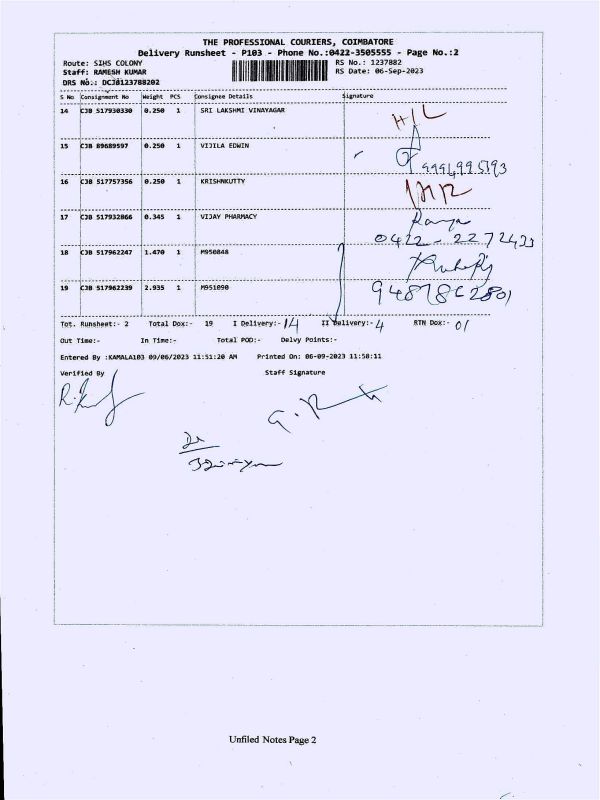 THE PROFESSIONAL COURIERS, COIMBATORE
Delivery Runsheet - P103 - Phone No.:0422-3505555 - Page No.:2
Route: SIHS COLONY
RS No.: 1237882
Staff: RAMESH KUMAR
RS Date: 06-Sep-2023
DRS No.: DCJB123788202
S No Consignment No Weight PCS Consignee Details Signature
14 CJB 517930330 0.250 1 SRI LAKSHMI VINAYAGAR H/L
15 CJB 89689597 0.250 1 VIJILA EDWIN
16 CJB 517757356 0.250 1 KRISHNKUTTY
17 CJB 517932866 0.345 1 VIJAY PHARMACY
0422-2272423
18 CJB 517962247 1.470 1 M950848
19 CJB 517962239 2.935 1 M951090
Tot. Runsheet:- 2 Total Dox:- 19 I Delivery:- 14 II Delivery:- 4 RTN Dox:- 01
Out Time:- In Time:- Total POD:- Delvy Points:-
Entered By :KAMALA103 09/06/2023 11:51:20 AM Printed On: 06-09-2023 11:50:11
Verified By Staff Signature
Unfiled Notes Page 2